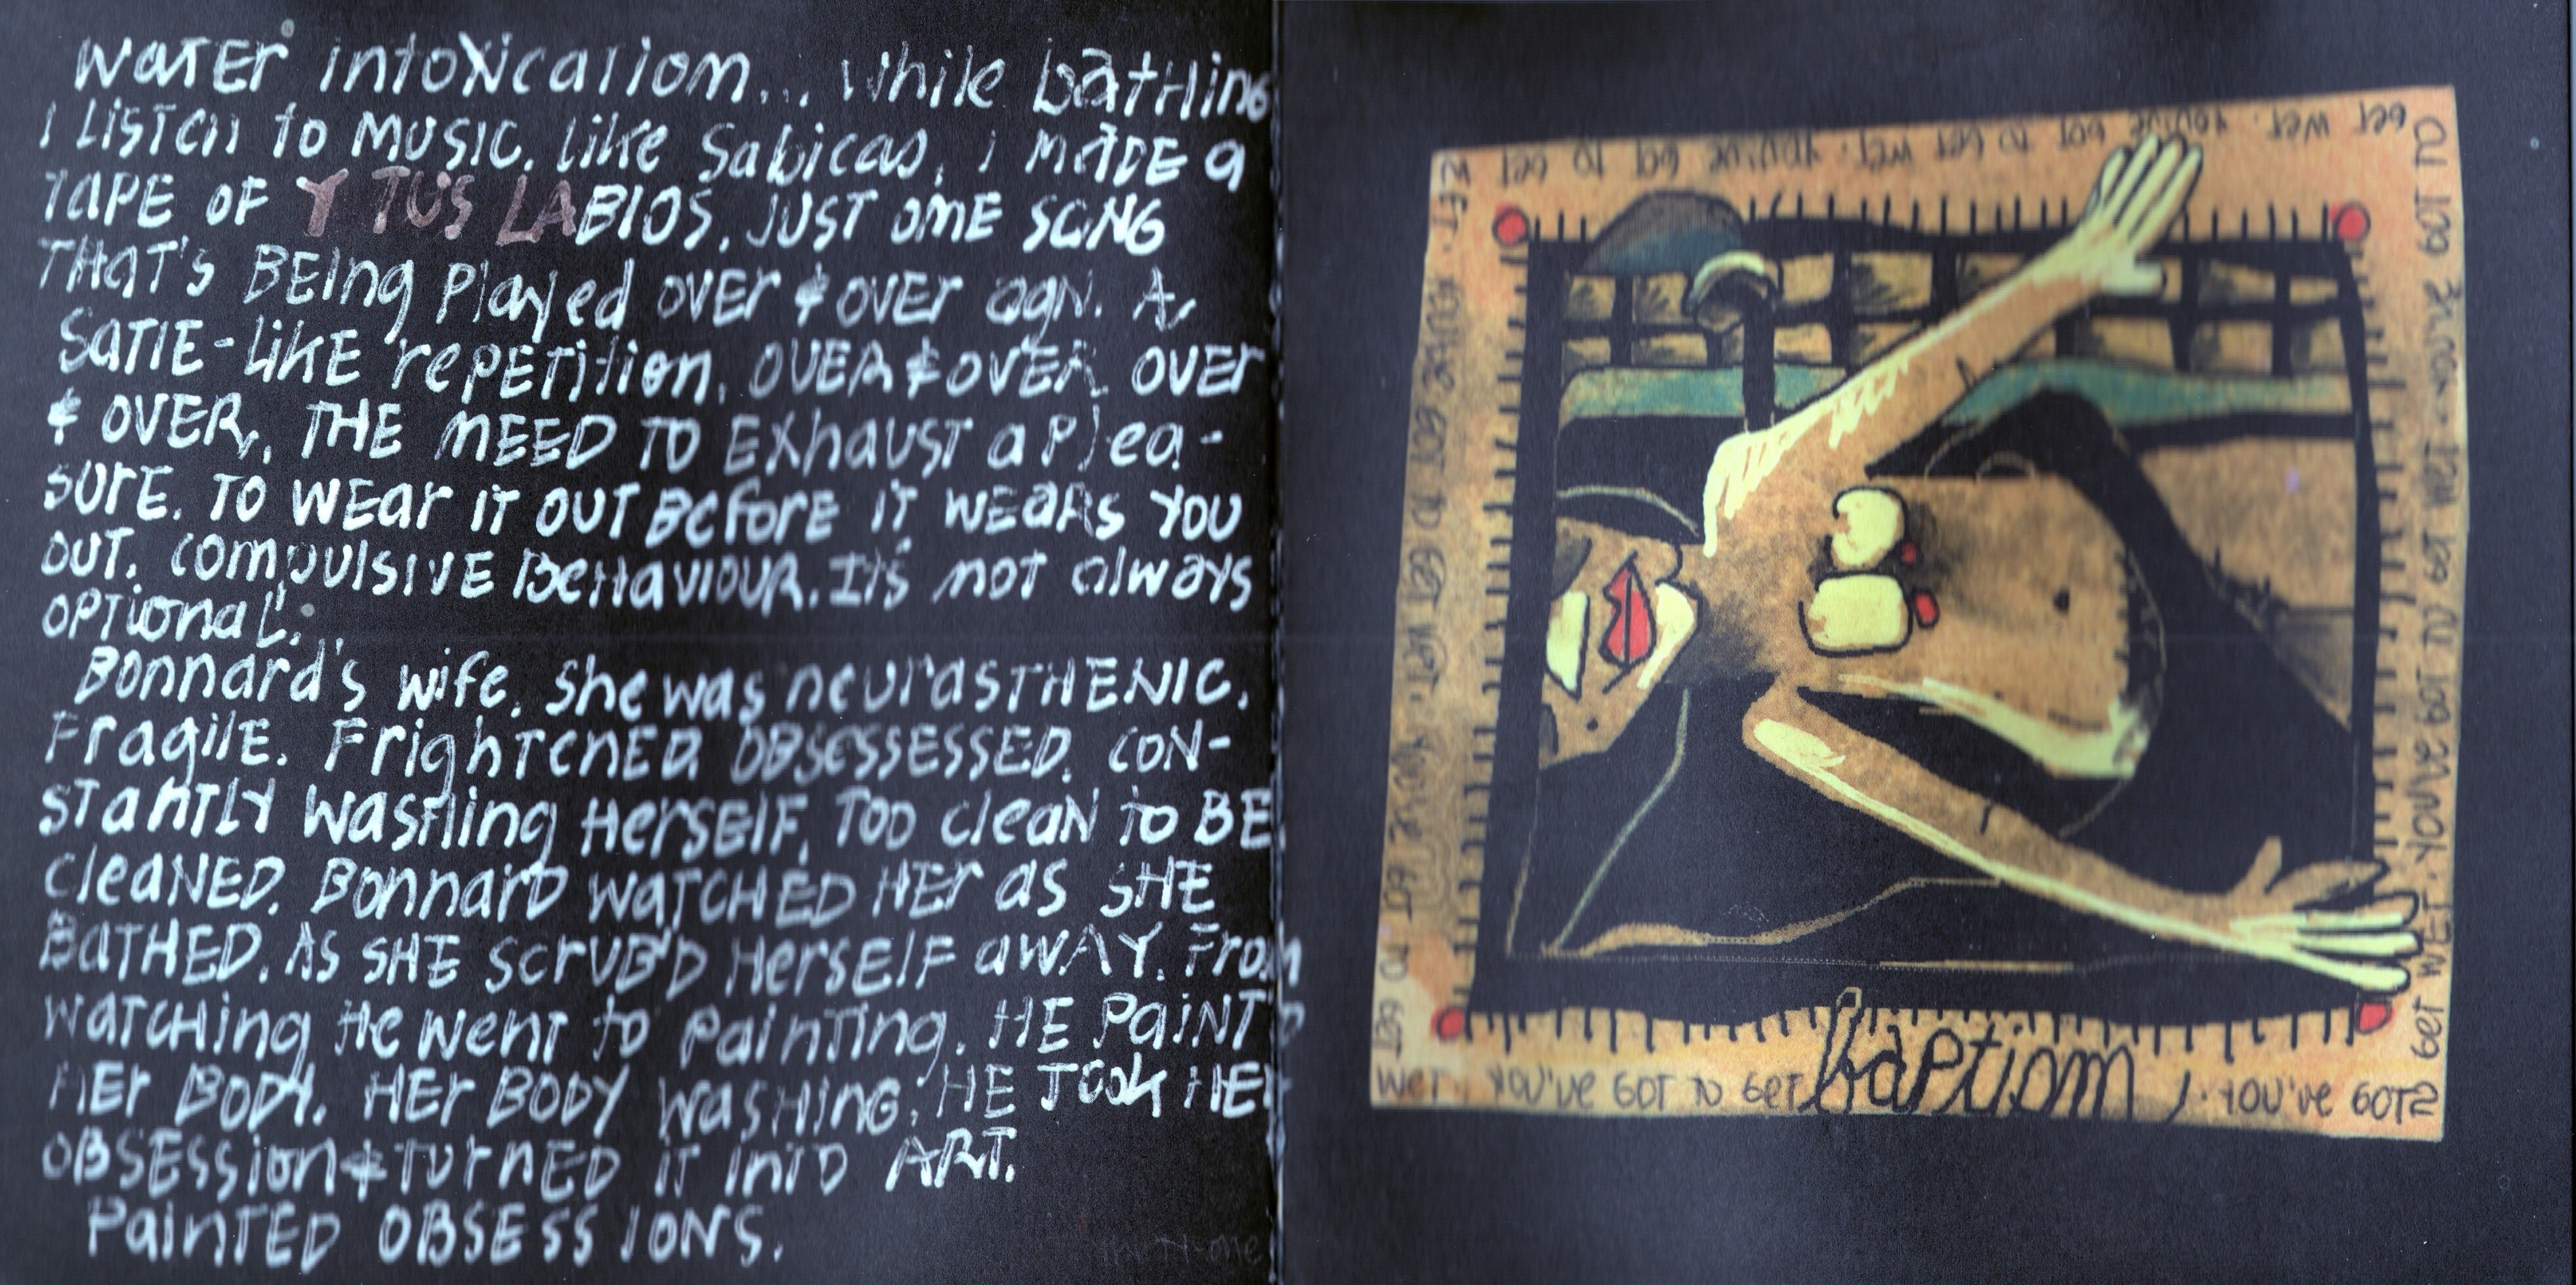 WATER intoXication... while bathing
I LISTEN to MUSIC. like Sabicas, i MADE a
TAPE OF Y TUS LABIOS. JUST ONE SONG
THAT'S BEING played OVER & OVER agn. A
SATIE-LIKE repetition. OVER & OVER. OVER
& OVER. THE NEED TO EXHAUST a Plea-
SURE. TO WEAR IT OUT BEFORE IT WEARS YOU
OUT. COMPULSIVE BEHAVIOUR. It's not always
OPTIONAL.
Bonnard's wife. she was neurasTHENIC.
Fragile. FrighTENED. OBSESSESSED. CON-
STANTLY WASHING HERSELF. TOO clean to BE
cleaNED. BonnarD WATCHED HEr as SHE
BATHED. AS SHE SCrUB'D HerSElF aWAY. From
WATCHing He WenT to PainTing. HE PaiNT'D
HEr BODY. HEr BODY WasHing. HE TOOK HEr
OBSESSion & TUrnED iT inTO ART.
PainTED OBSESSIONS.
GET WET. YOU'VE GOT TO GET WET. YOU'VE GOT TO GET
WET. YOU'VE GOT TO GET WET. YOU'VE GOT TO GET
WET. YOU'VE GOT TO GET
baptism
YOU'VE GOT 2
GET WET. YOU'VE GOT TO GET WET. YOU'VE GOT TO